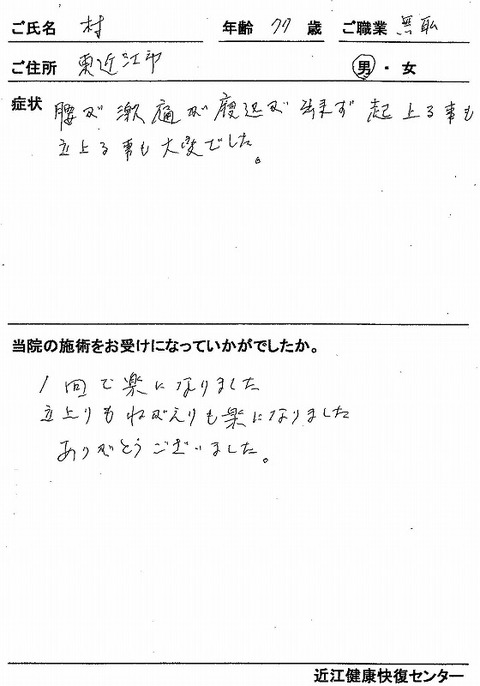 ご氏名 村 年齢 77 歳 ご職業 無職
ご住所 東近江市 男・女
症状 腰が激痛が 起上る事も
立上る事も大変でした。
当院の施術をお受けになっていかがでしたか。
1回で楽になりました
立上りもねがえりも楽になりました
ありがとうございました。
近江健康快復センター